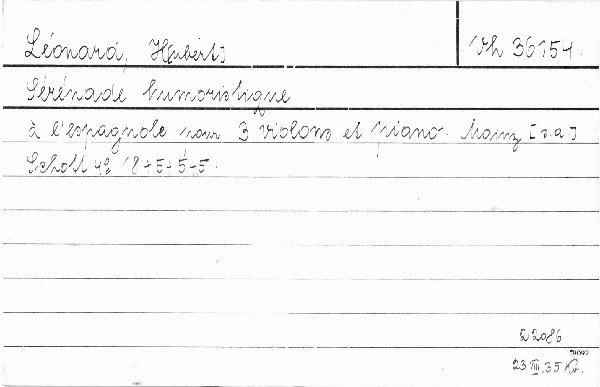 Léonard, H[ubert]
Vh 36154.
Sérénade humoristique
à l'espagnole pour 3 violons et piano. Mainz [s.a]
Schott 4° 18+5+5+5.
22086
23 VIII. 35 Kr.